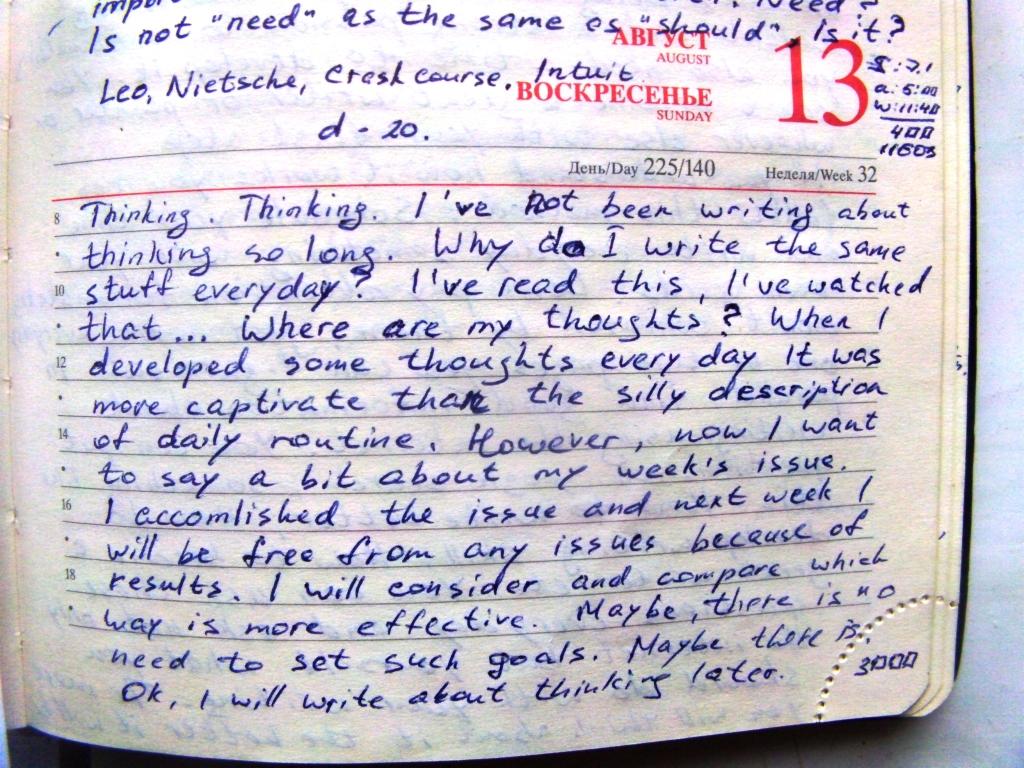 Need?
Is not "need" as the same as "should". Is it?
АВГУСТ
AUGUST
13
Leo, Nietsche, Crash course. Intuit
ВОСКРЕСЕНЬЕ
SUNDAY
d - 20.
a: 5:00
w: 11:40
400
11603
День/Day 225/140 Неделя/Week 32
8 Thinking. Thinking. I've not been writing about
thinking so long. Why do I write the same
10 stuff everyday? I've read this, I've watched
that... Where are my thoughts? When I
12 developed some thoughts every day It was
more captivate than the silly description
14 of daily routine. However, now I want
to say a bit about my week's issue.
16 I accomlished the issue and next week I
will be free from any issues because of
18 results. I will consider and compare which
way is more effective. Maybe, there is no
need to set such goals. Maybe there is.
Ok, I will write about thinking later.
3000